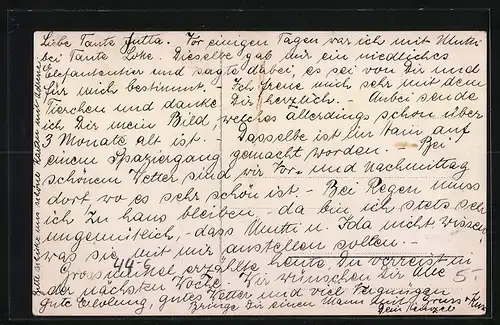 Liebe Tante Jutta. Vor einigen Tagen war ich mit Mutti
bei Tante Lotte. Dieselbe gab mir ein niedliches
Elefantentier und sagte dabei, es sei von Dir und
für mich bestimmt. Ich freue mich sehr mit dem
Tierchen und danke Dir herzlich. – Anbei sende
ich Dir mein Bild, welches allerdings schon über
3 Monate alt ist. – Dasselbe ist im Hain auf
einem Spaziergang gemacht worden. – Bei
schönem Wetter sind wir Vor- und Nachmittag
dort wo es sehr schön ist. – Bei Regen muss
ich zu haus bleiben, – da bin ich stets sehr
ungemütlich, – dass Mutti u. Ida nicht wissen,
was sie mit mir anstellen sollen. –
Grossonkel erzählte heute, Du verreist in
der nächsten Woche. Wir wünschen Dir Alle
gute Erholung, gutes Wetter und viel Vergnügen
Bringe Dir einen Mann mit. Gruss + Kuss
Dein
5-